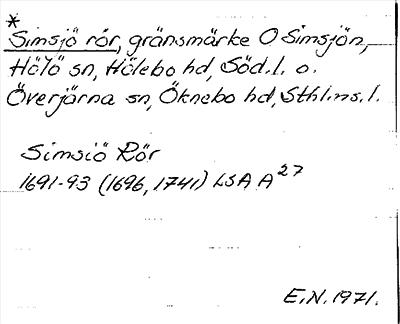 *
Simsjö rör, gränsmärke O Simsjön,
Hölö sn, Hölebo hd, Söd.l. o.
Överjärna sn, Öknebo hd, Sthlms.l.
Simsiö Rör
1691-93 (1696, 1741) LSA A27
E.N. 1971.